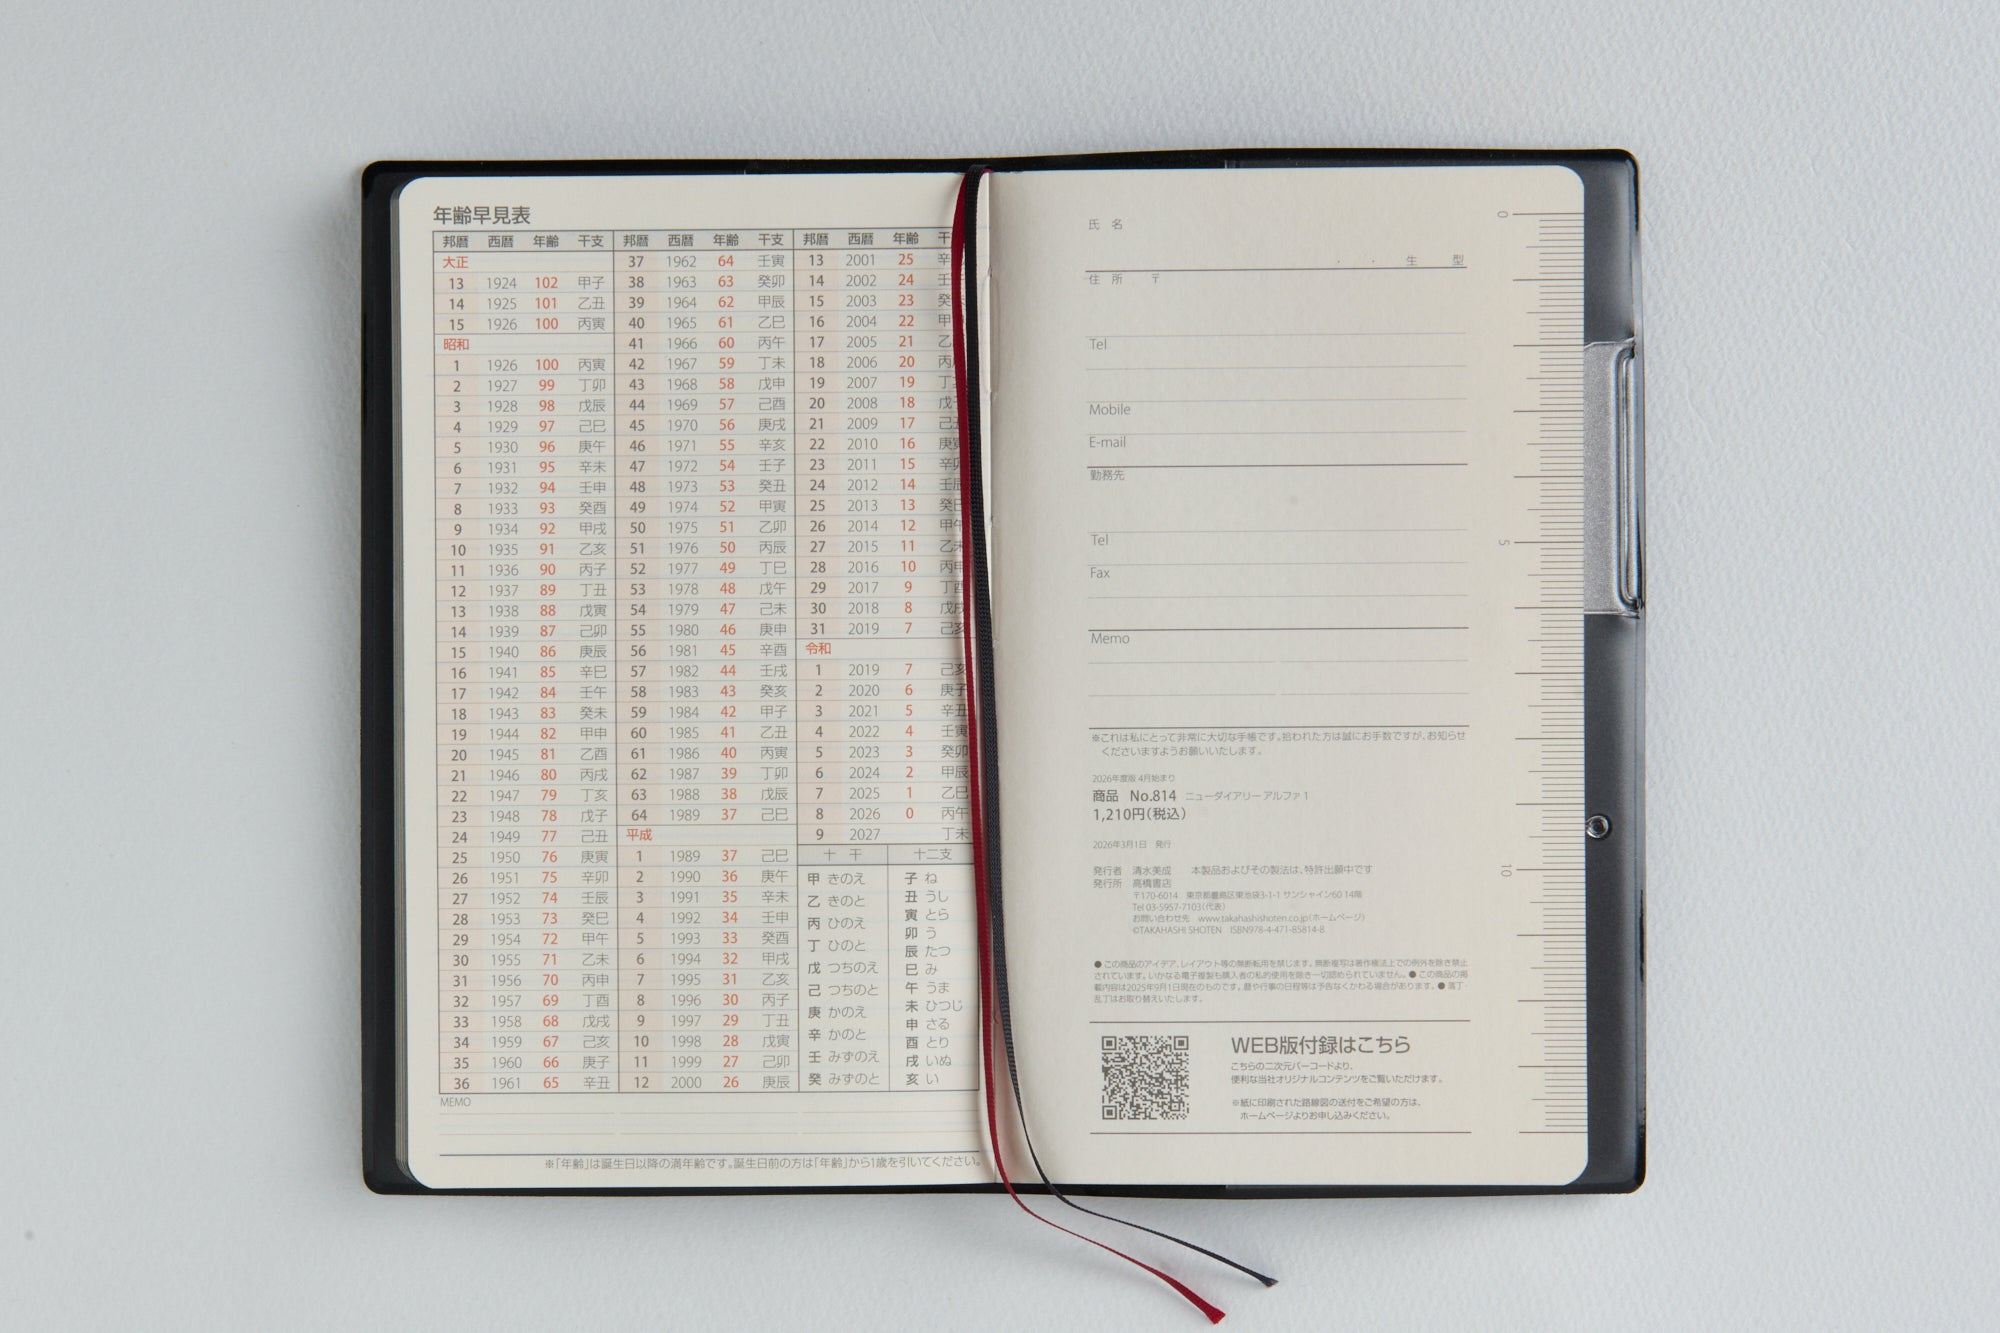 年齢早見表
邦暦 西暦 年齢 干支
大正
13 1924 102 甲子
14 1925 101 乙丑
15 1926 100 丙寅
昭和
1 1926 100 丙寅
2 1927 99 丁卯
3 1928 98 戊辰
4 1929 97 己巳
5 1930 96 庚午
6 1931 95 辛未
7 1932 94 壬申
8 1933 93 癸酉
9 1934 92 甲戌
10 1935 91 乙亥
11 1936 90 丙子
12 1937 89 丁丑
13 1938 88 戊寅
14 1939 87 己卯
15 1940 86 庚辰
16 1941 85 辛巳
17 1942 84 壬午
18 1943 83 癸未
19 1944 82 甲申
20 1945 81 乙酉
21 1946 80 丙戌
22 1947 79 丁亥
23 1948 78 戊子
24 1949 77 己丑
25 1950 76 庚寅
26 1951 75 辛卯
27 1952 74 壬辰
28 1953 73 癸巳
29 1954 72 甲午
30 1955 71 乙未
31 1956 70 丙申
32 1957 69 丁酉
33 1958 68 戊戌
34 1959 67 己亥
35 1960 66 庚子
36 1961 65 辛丑
邦暦 西暦 年齢 干支
37 1962 64 壬寅
38 1963 63 癸卯
39 1964 62 甲辰
40 1965 61 乙巳
41 1966 60 丙午
42 1967 59 丁未
43 1968 58 戊申
44 1969 57 己酉
45 1970 56 庚戌
46 1971 55 辛亥
47 1972 54 壬子
48 1973 53 癸丑
49 1974 52 甲寅
50 1975 51 乙卯
51 1976 50 丙辰
52 1977 49 丁巳
53 1978 48 戊午
54 1979 47 己未
55 1980 46 庚申
56 1981 45 辛酉
57 1982 44 壬戌
58 1983 43 癸亥
59 1984 42 甲子
60 1985 41 乙丑
61 1986 40 丙寅
62 1987 39 丁卯
63 1988 38 戊辰
64 1989 37 己巳
平成
1 1989 37 己巳
2 1990 36 庚午
3 1991 35 辛未
4 1992 34 壬申
5 1993 33 癸酉
6 1994 32 甲戌
7 1995 31 乙亥
8 1996 30 丙子
9 1997 29 丁丑
10 1998 28 戊寅
11 1999 27 己卯
12 2000 26 庚辰
邦暦 西暦 年齢 干
13 2001 25 辛
14 2002 24 壬
15 2003 23 癸
16 2004 22 甲
17 2005 21 乙
18 2006 20 丙
19 2007 19 丁
20 2008 18 戊
21 2009 17 己丑
22 2010 16 庚寅
23 2011 15 辛卯
24 2012 14 壬辰
25 2013 13 癸巳
26 2014 12 甲午
27 2015 11 乙未
28 2016 10 丙申
29 2017 9 丁酉
30 2018 8 戊戌
31 2019 7 己亥
令和
1 2019 7 己亥
2 2020 6 庚子
3 2021 5 辛丑
4 2022 4 壬寅
5 2023 3 癸卯
6 2024 2 甲辰
7 2025 1 乙巳
8 2026 0 丙午
9 2027 丁未
十干
甲 きのえ
乙 きのと
丙 ひのえ
丁 ひのと
戊 つちのえ
己 つちのと
庚 かのえ
辛 かのと
壬 みずのえ
癸 みずのと
十二支
子 ね
丑 うし
寅 とら
卯 う
辰 たつ
巳 み
午 うま
未 ひつじ
申 さる
酉 とり
戌 いぬ
亥 い
MEMO
※「年齢」は誕生日以降の満年齢です。誕生日前の方は「年齢」から1歳を引いてください。
氏 名
・ ・ 生 型
住 所 〒
Tel
Mobile
E-mail
勤務先
Tel
Fax
Memo
※これは私にとって非常に大切な手帳です。拾われた方は誠にお手数ですが、お知らせ
くださいますようお願いいたします。
2026年度版 4月始まり
商品 No.814 ニューダイアリー アルファ 1
1,210円(税込)
2026年3月1日 発行
発行者 清水美成 本製品およびその製法は、特許出願中です
発行所 高橋書店
〒170-6014 東京都豊島区東池袋3-1-1 サンシャイン60 14階
Tel 03-5957-7103(代表)
お問い合わせ先 www.takahashishoten.co.jp(ホームページ)
©TAKAHASHI SHOTEN ISBN978-4-471-85814-8
● この商品のアイデア、レイアウト等の無断転用を禁じます。無断複写は著作権法上での例外を除き禁止
されています。いかなる電子複製も購入者の私的使用を除き一切認められていません。● この商品の掲
載内容は2025年9月1日現在のものです。暦や行事の日程等は予告なくかわる場合があります。● 落丁・
乱丁はお取り替えいたします。
WEB版付録はこちら
こちらの二次元バーコードより、
便利な当社オリジナルコンテンツをご覧いただけます。
※紙に印刷された路線図の送付をご希望の方は、
ホームページよりお申し込みください。
0
5
10